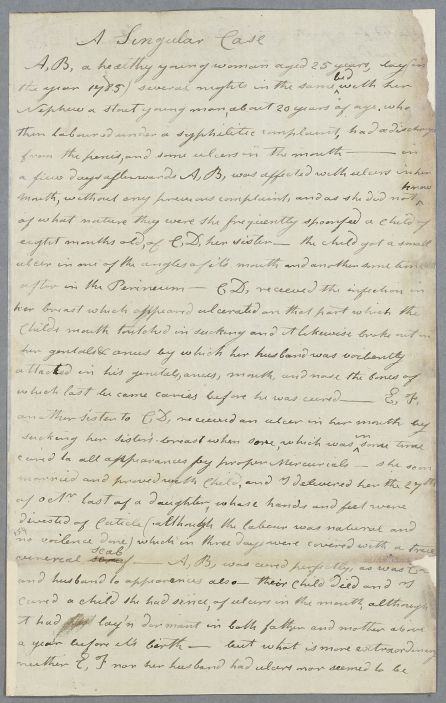 A Singular Case
A, B, a healthy young woman aged 25 years, lay (in
the year 1785) several nights in the same bed, with her
Nephew a stout young man, about 20 years of age, who
then laboured under a syphelitic complaint, had a discharge
from the penis, and some ulcers in the mouth — in
a few days afterwards A, B, was affected with ulcers in her
mouth, without any previous complaint, and as she did not know
of what nature they were she frequently spoonfed a child of
eight months old, of C, D, her sister — the child got a small
ulcer in one of the angles of its mouth and another some time
after in the Perineum — C, D, received the infection in
her breast which appeared ulcerated on that part which the
Childs mouth touched in sucking and it likewise broke out in
her genitals & anus by which her husband was violently
attackted in his genitals, anus, mouth, and nose the bones of
which last became caries before he was cured — E, F,
another sister to C, D, received an ulcer in her mouth by
sucking her sister's breast when sore, which was in some time
cured to all appearances by proper Mercurials — she soon
married and proved with Child, and I delivered her the 27th
of Octr last of a daughter, whose hands and feet were
divested of Cuticle (although the labour was natural and
no voilence done) which in three days were covered with a true
venereal scab — A, B, was cured perfectly, as was C, D
and husband to appearances also — their Child died and I
cured a child she had since, of ulcers in the mouth, although
it had lay'n dormant in both father and mother above
a year before it's birth — but what is more extraordinary
neither E, F nor her husband had ulcers nor seemed to be